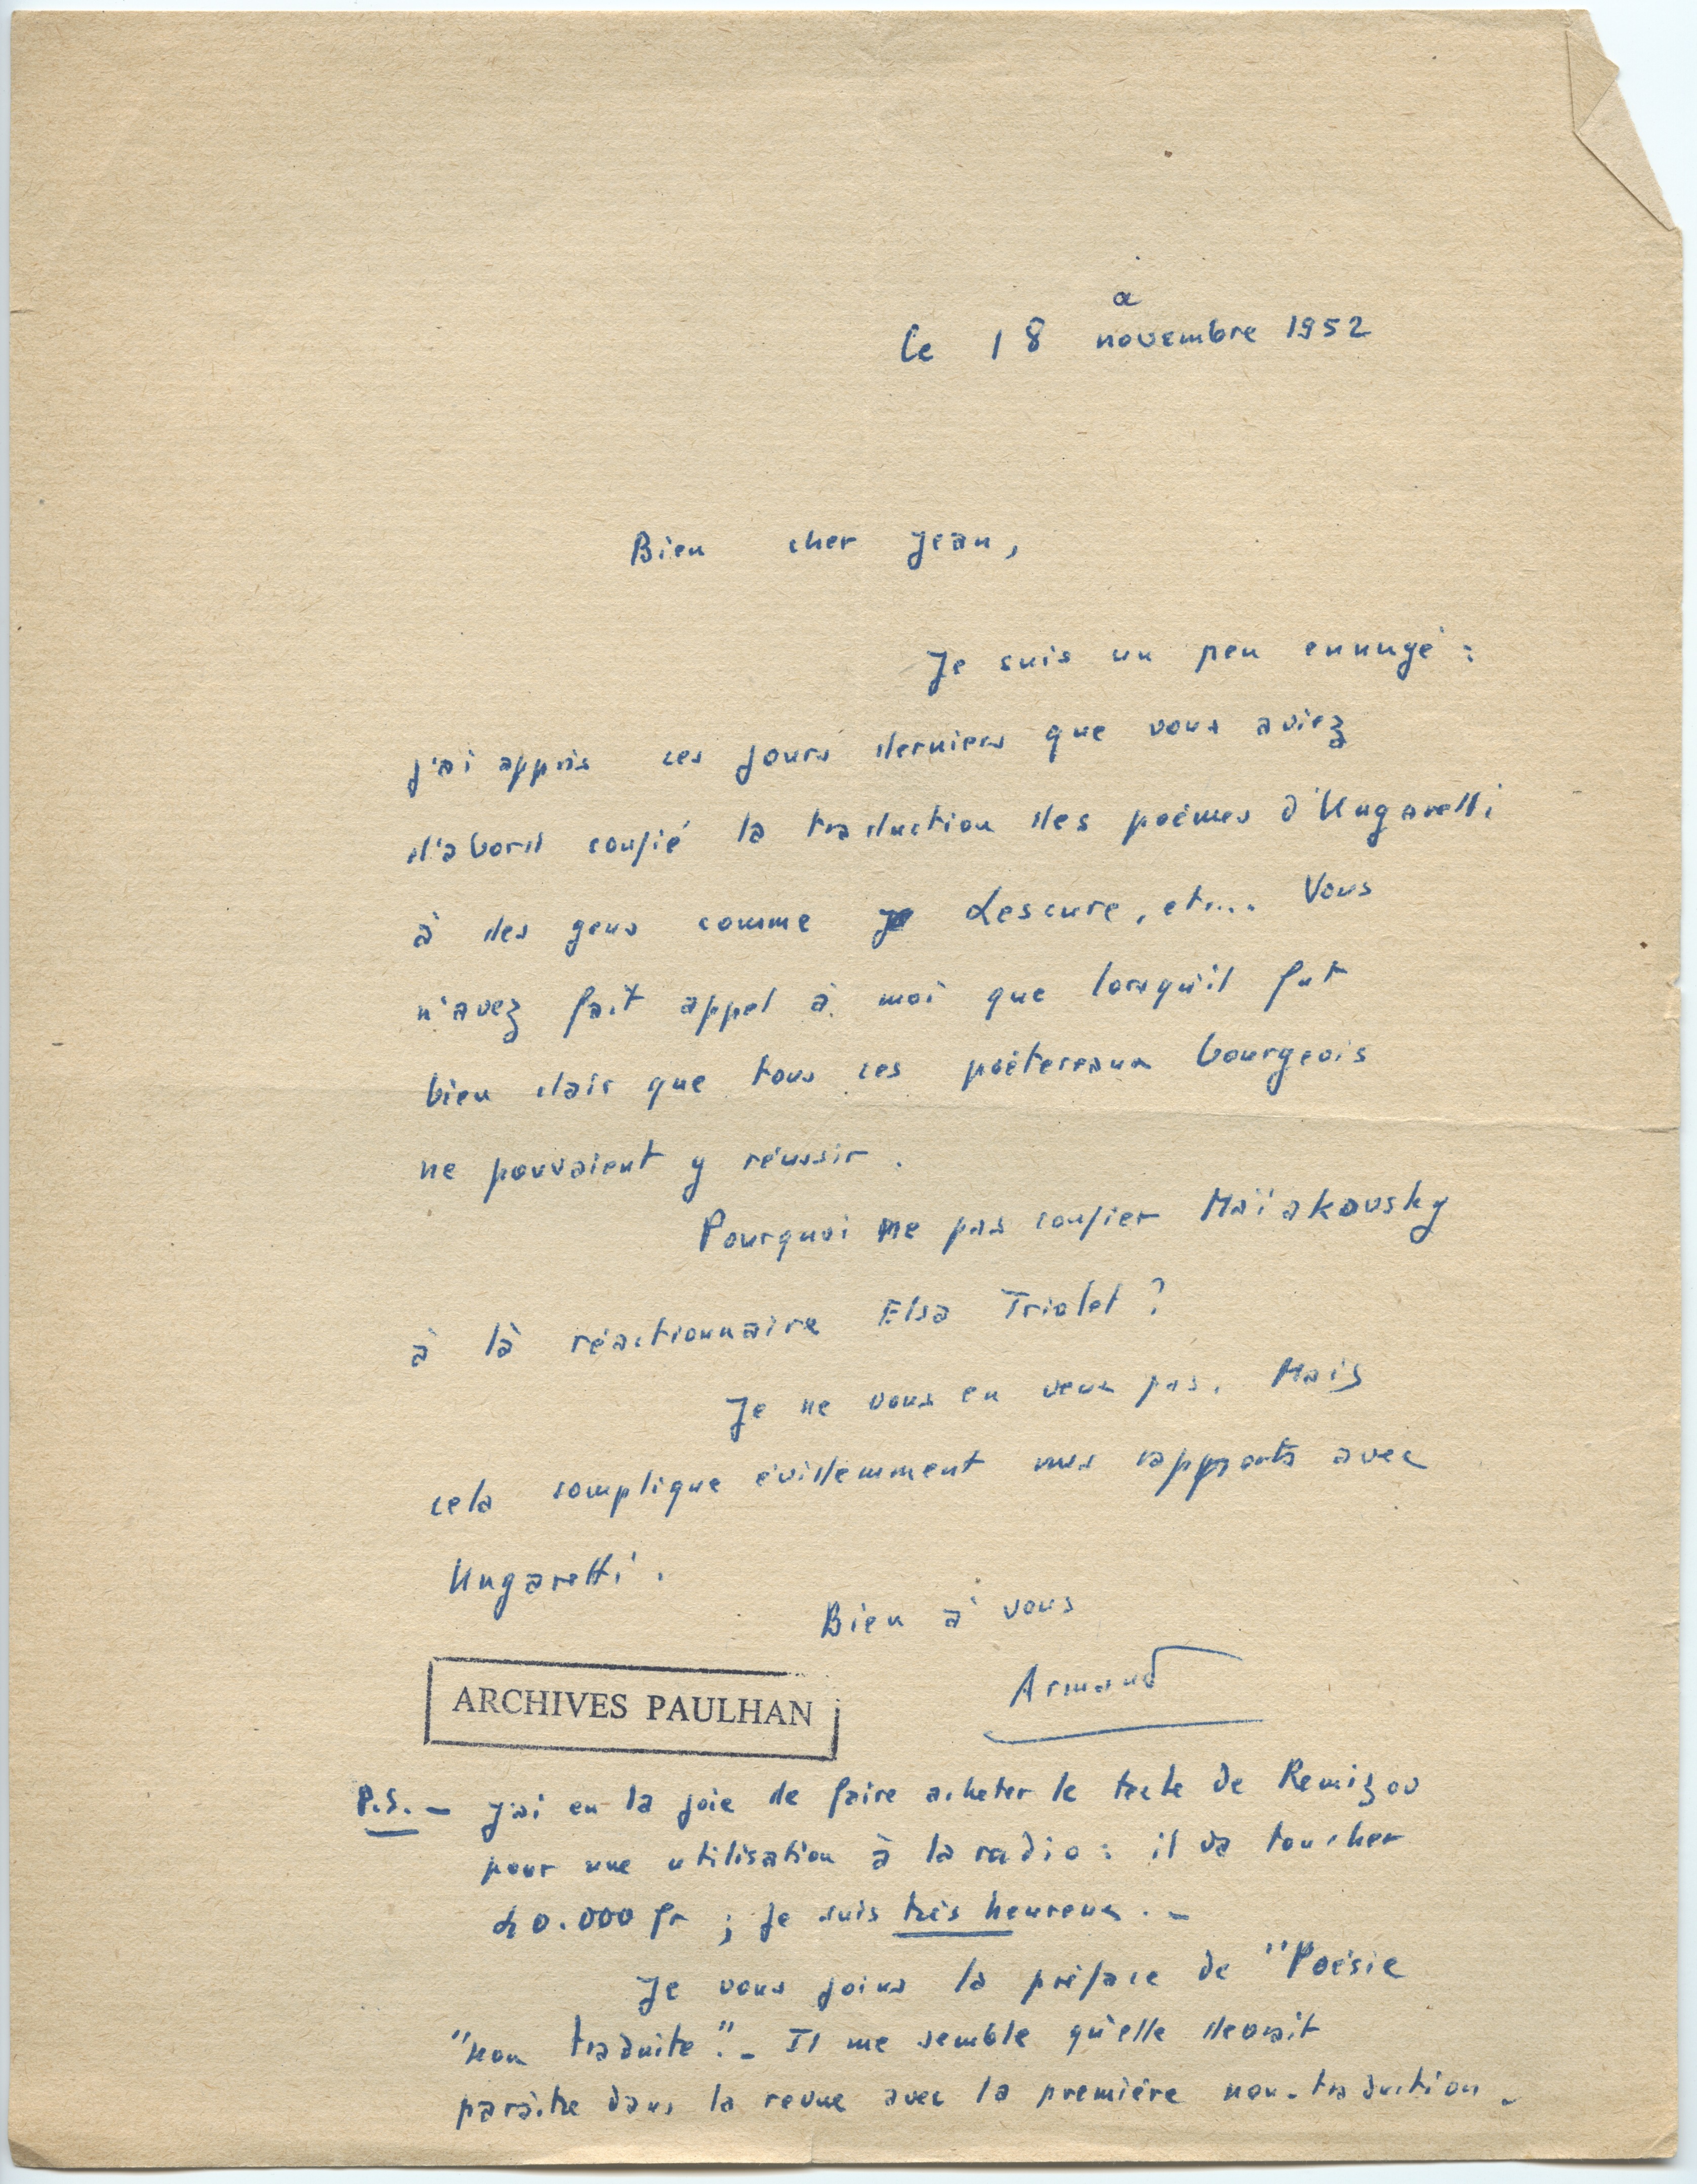 a
le 18 novembre 1952
Bien cher Jean,
Je suis un peu ennuyé :
j'ai appris ces jours derniers que vous aviez
d'abord confié la traduction des poèmes d'Ungaretti
à des gens comme Lescure, etc... Vous
n'avez fait appel à moi que lorsqu'il fut
bien clair que tous ces poètereaux bourgeois
ne pouvaient y réussir.
Pourquoi ne pas confier Maïakovsky
à là réactionnaire Elsa Triolet ?
Je ne vous en veux pas. Mais
cela complique évidemment mes rapports avec
Ungaretti.
Bien à vous
Armand
ARCHIVES PAULHAN
P.S. — J'ai eu la joie de faire acheter le texte de Remizov
pour une utilisation à la radio : il va toucher
40.000 fr ; je suis très heureux. —
Je vous joins la préface de "Poésie
"non traduite". — Il me semble qu'elle devrait
paraître dans la revue avec la première non-traduction —